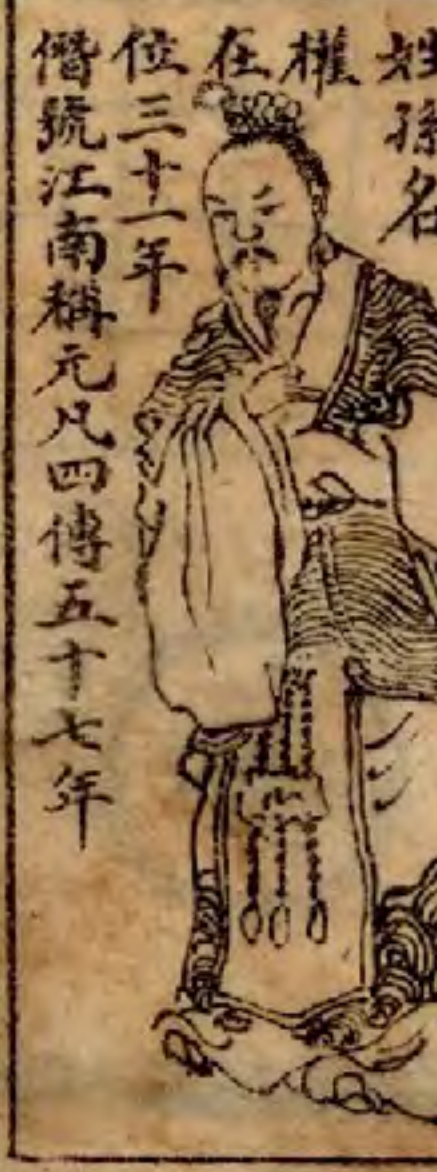 姓孫名
權
在
位三十一年
僭號江南稱元凡四傳五十七年